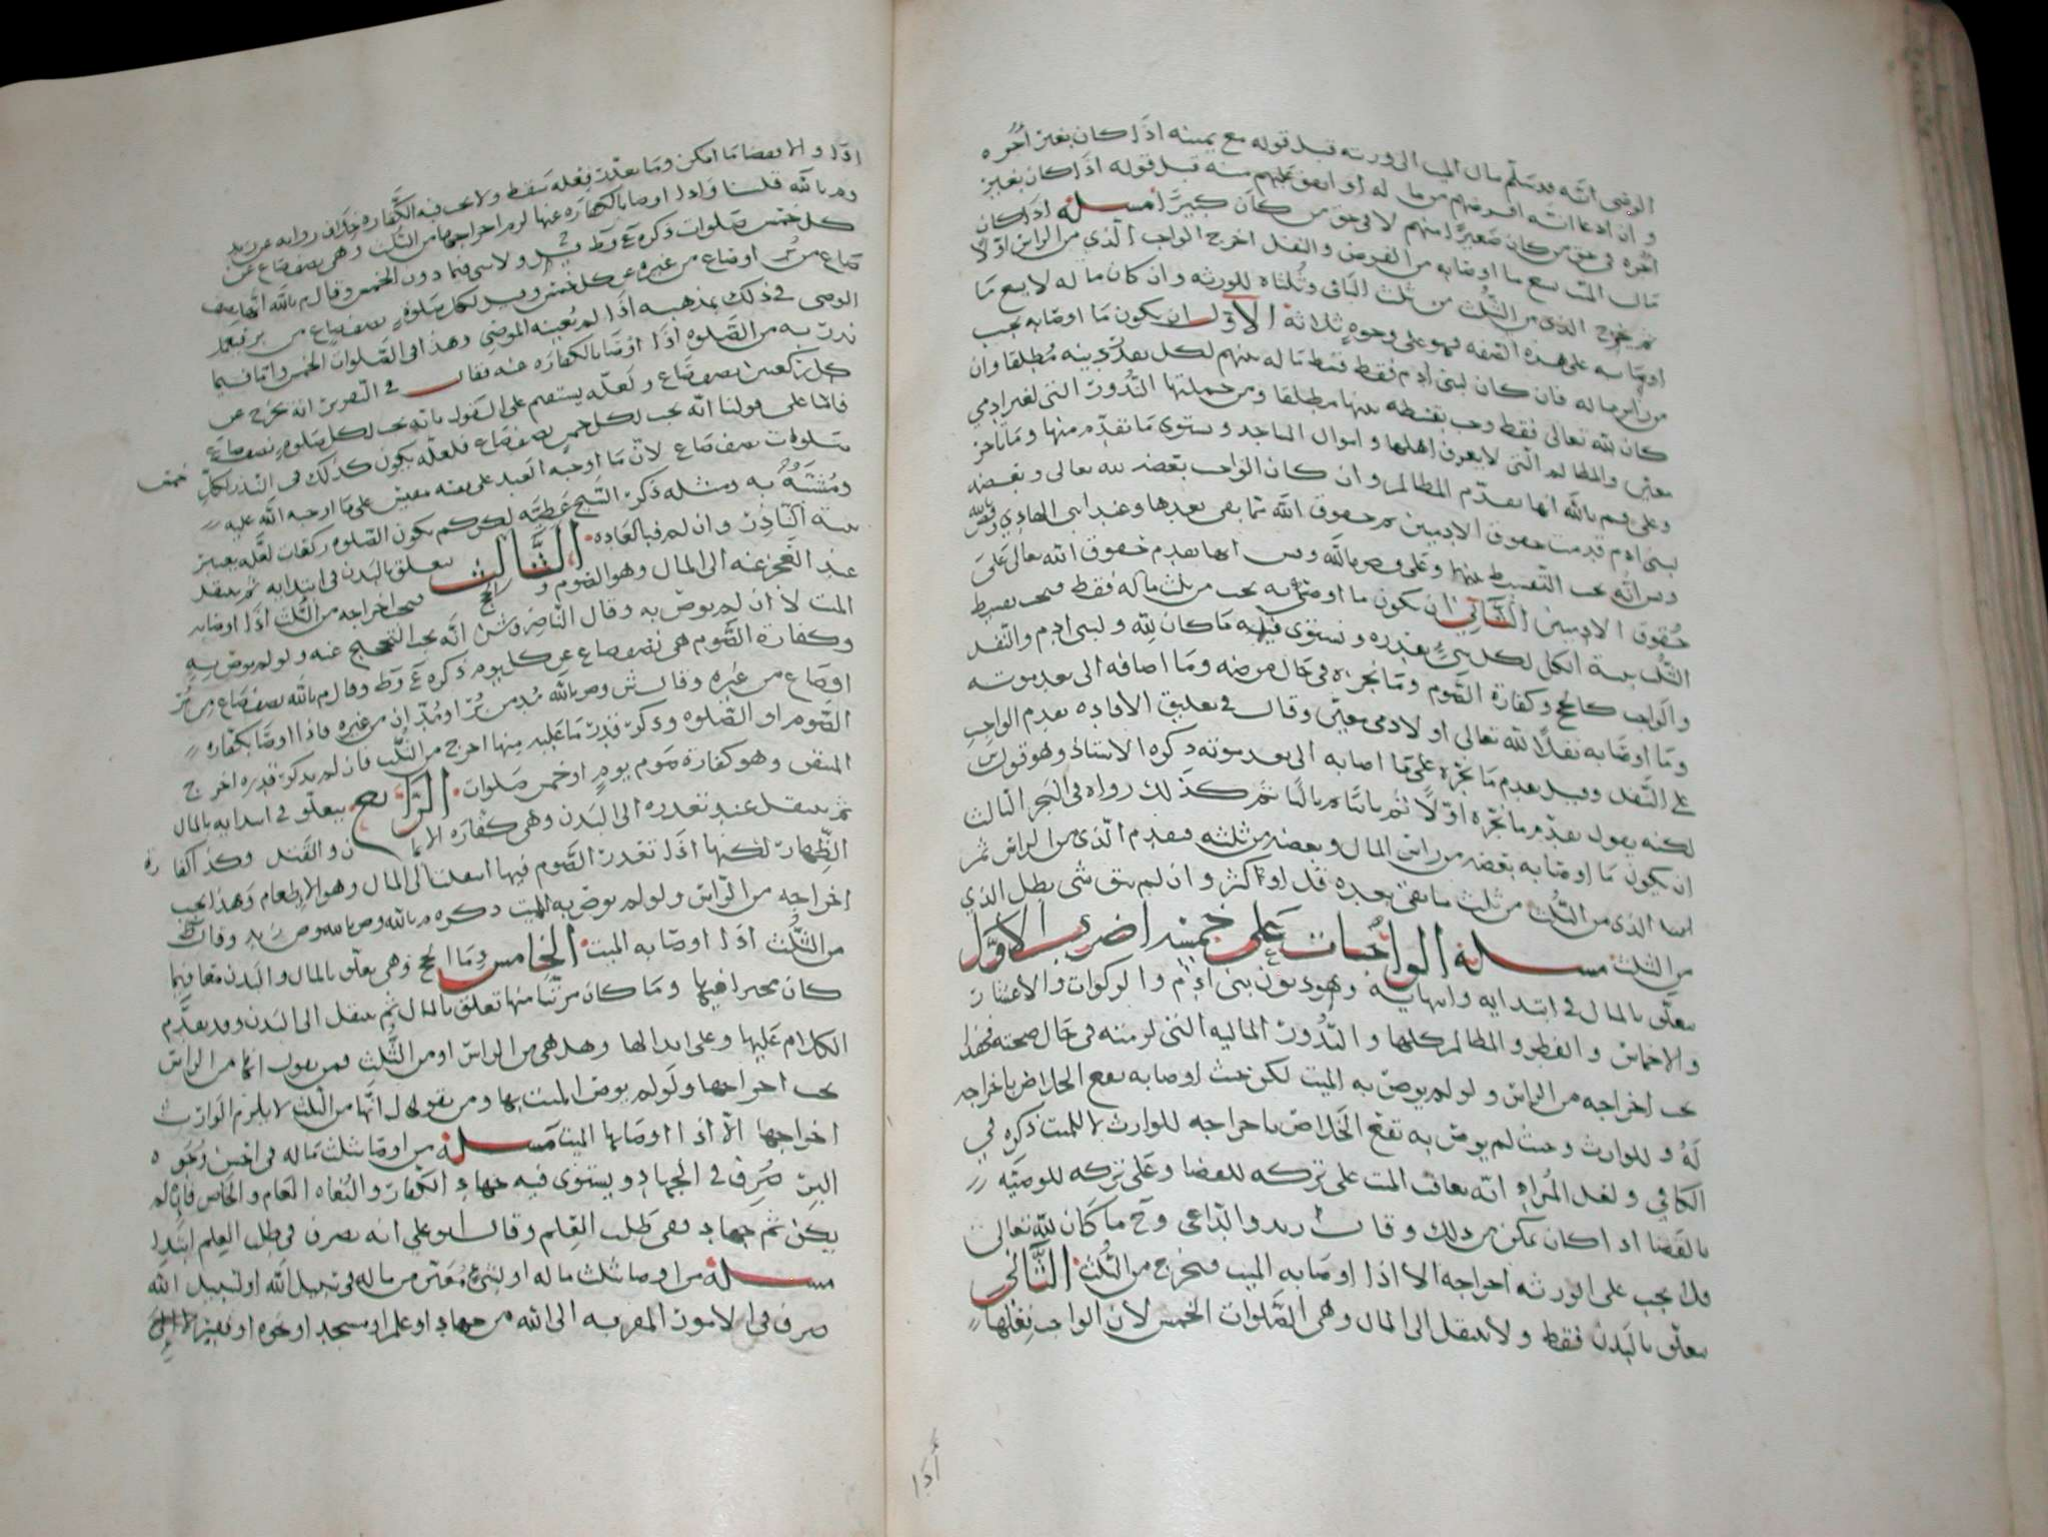 الوصى انه قد سلم مال الميت الى ورثته قبل قوله مع يمينه اذا كان بغير أجره
و ان ادعا انه اقرضهم من ماله او انفق عليهم منه قبل قوله اذا كان بغير
أجره في حق من كان صغيرًا منهم لا في حق من كان كبيرًا مسله اذا كان
مال الميت يسع ما اوصا به من الفرض والنفل اخرج الواجب الذي من الراس اولًا
ثم يخرج الذي من الثلث من ثلث الباقى وثلثاه للورثه وان كان ماله لا يسع ما
اوصا به على هذه الصفه فهو على وجوه ثلاثة الاول ان يكون ما اوصا به يجب
من راس ماله فان كان لبنى ادم فقط قسط ماله بينهم لكل بقدر دينه مطلقا وان
كان لله تعالى فقط وجب تقسطه بينها مطلقا ومن جملتها النذور التى لغير ادمي
معين والمظالم التى لا يعرف اهلها و اموال المساجد و يستوى ما تقدم منها وما تأخر
وعلى قم بالله انها تقدم المظالم و ان كان الواجب بعضه لله تعالى وبعضه
لبنى ادم قدمت حقوق الادميين ثم حقوق الله مما بقى بعدها وعند ابى
انه يجب التقسيط بينها وعلى وم بالله انها تقدم حقوق الله تعالى على
حقوق الادميين الثاني ان يكون ما اوصى به يجب من ثلث ماله فقط فيجب تقسيط
الثلث بينه الكل لكل شيءٍ بقدره و يستوى فيه ما كان لله و لبنى ادم والنفل
والواجب كالحج وكفارة الصوم وما نجزه في حال مرضه وما اضافه الى بعد موته
وما اوصا به نفلًا لله تعالى او لادمى معين وقال في تعليق الافاده يقدم الواجب
على النفل وقيل يقدم ما نجزه على ما اضافه الى بعد موته ذكره الاستاذ وهو قول
لكنه يقول يقدم ما نجزه اولًا ثم ثانيا ثم ثالثا ثم كذلك رواه في البحر الثالث
ان يكون ما اوصا به بعضه من راس المال وبعضه من ثلثه فيقدم الذى من الراس ثم
الذى من الثلث من ثلث ما بقى بعده قل او كثر و ان لم يبق شى بطل الذي
من الثلث مسله الواجبات على خمسة اضرب الاول
يتعلق بالمال في ابتدايه وانتهايه وهو ديون بنى ادم والزكوات والاعشار
والاخماس والفطر والمظالم كلها و النذور الماليه التى لزمته في حال صحته فهذا
يجب اخراجه من الراس ولو لم يوص به الميت لكن حيث اوصا به يقع الخلاص باخراجه
له و للوارث وحيث لم يوص به يقع الخلاص باخراجه للوارث لا للميت ذكره في
الكافي و لعل المراد انه يعاقب الميت على تركه للقضا وعلى تركه للوصيه
بالقضا اذا كان يمكن من ذلك و قال زيد والداعى وح ما كان لله تعالى
فلا يجب على الورثه اخراجه الا اذا اوصا به الميت فيخرج من الثلث الثانى
يتعلق بالبدن فقط و لا ينتقل الى المال وهى الصلوات الخمس لان الواجب فعلها
أدا
ادا والا بقضا ما امكن وما تعذر فعله سقط ولا يجب فيه الكفاره خلاف روايه عن زيد
وم بالله قلنا واذا اوصا بالكفاره عنها لزم اخراجها من الثلث وهى نصف صاع عن
كل خمس صلوات ذكره ع وط قيل ح ولا شى فيما دون الخمس وقال م بالله انها نصف
صاع من بر او صاع من غيره عن كل خمس وقيل لكل صلوة نصف صاع من بر فيعمل
الوصى في ذلك بمذهبه اذا لم يعينه الموصى وهذا فى الصلوات الخمس واما فيما
نذر به من الصلوة اذا اوصا بالكفاره عنه فقال في التقرير انه يخرج عن
كل ركعتين نصف صاع و لعله يستقيم على القول بانه يجب لكل صلوةٍ نصف صاع
فاما على قولنا انه يجب لكل خمس نصف صاع فلعله يكون كذلك في النذر لكل خمس
صلوات نصف صاع لان ما اوجبه العبد على نفسه مقيس على ما اوجبه الله عليه
ومشبه به ومثله ذكر الشيخ عطيه لكن كم يكون الصلوه ركعات لعله يعتبر
نية الناذر وان لم فبالعاده الثالث يتعلق بالبدن في ابتدايه ثم ينتقل
عند العجز عنه الى المال وهو الصوم و الحج فيجب اخراجه من الثلث اذا اوصا به
الميت لا ان لم يوص به و قال الناصر وش انه يجب التحجيج عنه ولو لم يوص به
وكفارة الصوم هى نصف صاع عن كل يوم ذكره ع وط وقال م بالله نصف صاع من بر
او صاع من غيره وقال ش وص بالله مد من بر او مدان من غيره فاذا اوصا بكفاره
الصوم او الصلوه وذكر قدر ما عليه منها اخرج من الثلث فان لم يذكر قدره اخرج
المتيقن وهو كفارة صوم يومٍ او خمس صلوات الرابع يتعلق في ابتدايه بالمال
ثم ينتقل عند تعذره الى البدن وهى كفارة الايمان والقتل وكذا كفارة
الظهار لكنها اذا تعذر الصوم فيها انتقلنا الى المال وهو الاطعام وهذا يجب
اخراجه من الراس ولو لم يوص به الميت ذكره م بالله وص بالله وص زيد وقال
من الثلث اذا اوصا به الميت الخامس وما الحج وهى يتعلق بالمال والبدن معا فيما
كان مخيرا فيها وما كان مرتبا منها تعلق بالمال ثم ينتقل الى البدن وقد تقدم
الكلام عليها وعلى ابدالها وهل هى من الراس او من الثلث فمن يقول انها من الراس
يجب اخراجها ولو لم يوص الميت بها ومن يقول انها من الثلث لا يلزم الوارث
اخراجها الا اذا اوصا بها الميت مسله من اوصا بثلث ماله في احسن وجوه
البر صرف في الجهاد و يستوى فيه جهاد الكفار والبغاه العام والخاص فان لم
يكن ثم جهاد ففى طلب العلم وقال ابو على انه يصرف في طلب العلم ابتدا
مسله من اوصا بثلث ماله او بشيءٍ معين من ماله في سبيل الله او لسبيل الله
صرف في الامور المقربه الى الله من جهاد او علم او مسجد او نحوه او فقير